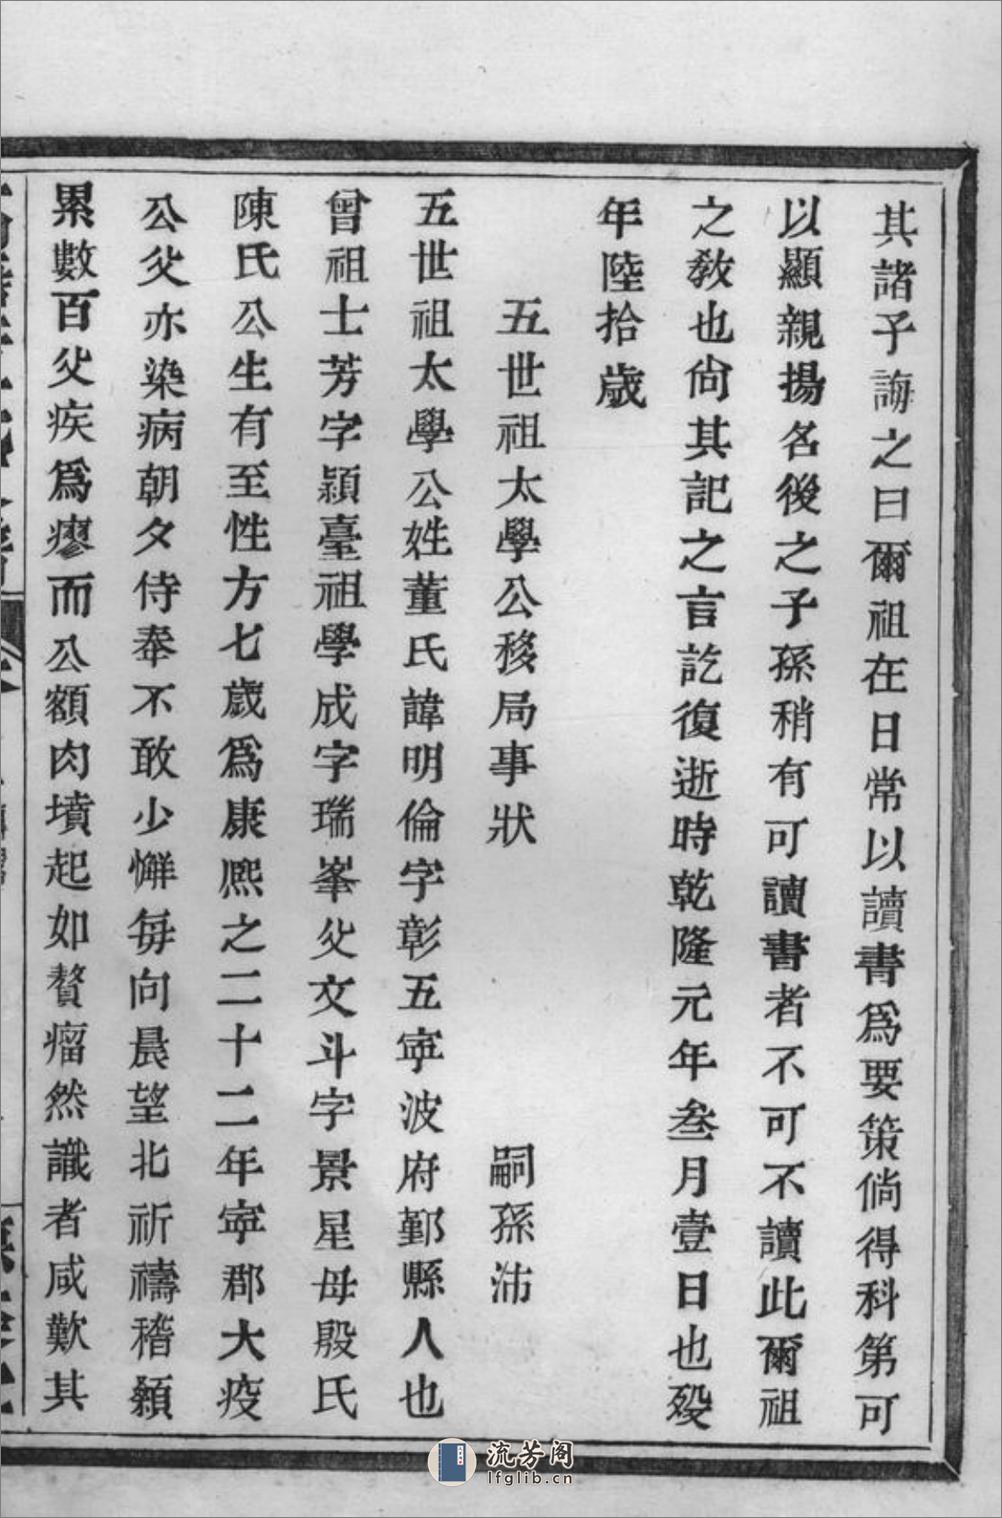 其諸子誨之曰爾祖在日常以讀書爲要策倘得科第可
以顯親揚名後之子孫稍有可讀書者不可不讀此爾祖
之敎也尙其記之言訖復逝時乾隆元年叁月壹日也殁
年陸拾歲
五世祖太學公移局事狀
嗣孫沛
五世祖太學公姓董氏諱明倫字彰五寧波府鄞縣人也
曾祖士芳字潁臺祖學成字瑞峯父文斗字景星母殷氏
陳氏公生有至性方七歲爲康熙之二十二年寧郡大疫
公父亦染病朝夕侍奉不敢少懈每向晨望北祈禱稽顙
累數百父疾爲瘳而公額肉墳起如贅瘤然識者咸歎其
流芳阁
lfglib.cn